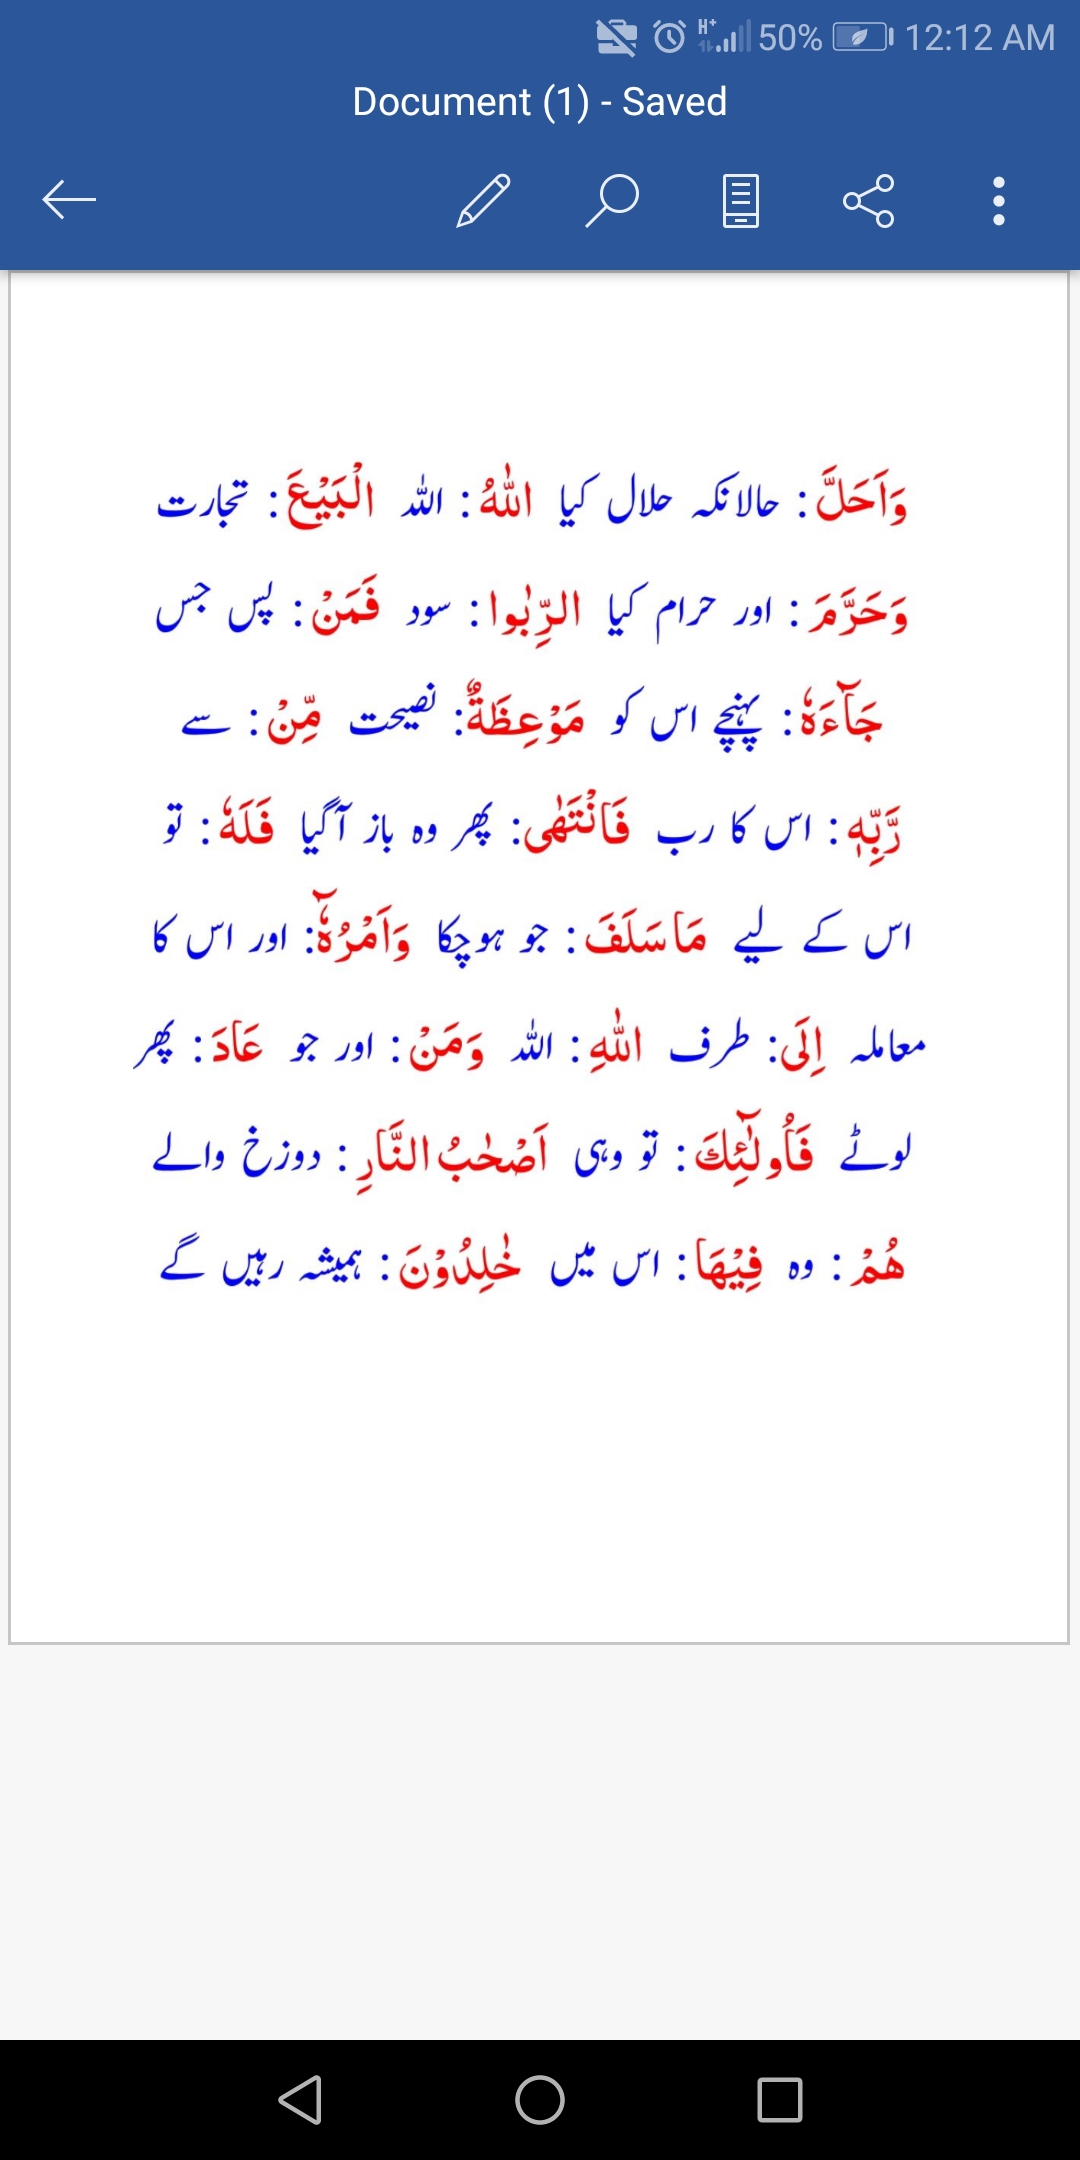 50% 12:12 AM
Document (1) - Saved
وَاَحَلَّ : حالانکہ حلال کیا اللّٰهُ : اللہ الْبَيْعَ : تجارت
وَحَرَّمَ : اور حرام کیا الرِّبٰوا : سود فَمَنْ : پس جس
جَآءَهٗ : پہنچے اس کو مَوْعِظَةٌ : نصیحت مِّنْ : سے
رَّبِّهٖ : اس کا رب فَانْتَهٰى : پھر وہ باز آگیا فَلَهٗ : تو
اس کے لیے مَا سَلَفَ : جو ہوچکا وَاَمْرُهٗٓ : اور اس کا
معاملہ اِلَى : طرف اللّٰهِ : اللہ وَمَنْ : اور جو عَادَ : پھر
لوٹے فَاُولٰٓئِكَ : تو وہی اَصْحٰبُ النَّارِ : دوزخ والے
هُمْ : وہ فِيْهَا : اس میں خٰلِدُوْنَ : ہمیشہ رہیں گے